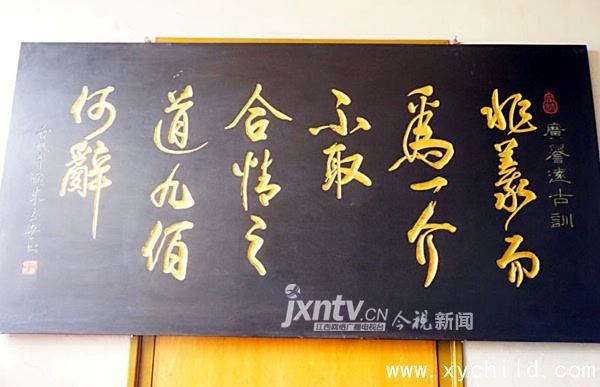 廣譽遠古訓
非義而
為一介
不取
合情之
道九佰
何辭
jxntv.CN
江西网络广播电视台
今视新闻
www.xychild.com